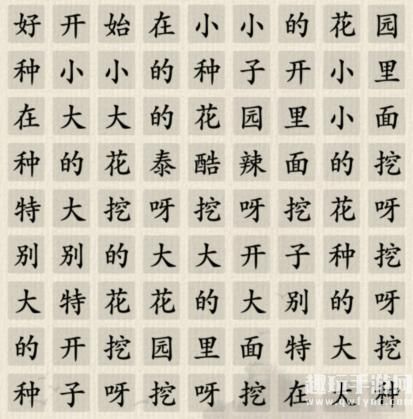 好开始在小小的花园
种小小的种子开小里
在大大的花园里小面
种的花泰酷辣面的挖
特大挖呀挖呀挖花呀
别别的大大开子种挖
大特花花的大别的呀
的开挖园里面特大挖
种子呀挖呀挖在小
趣玩手游网